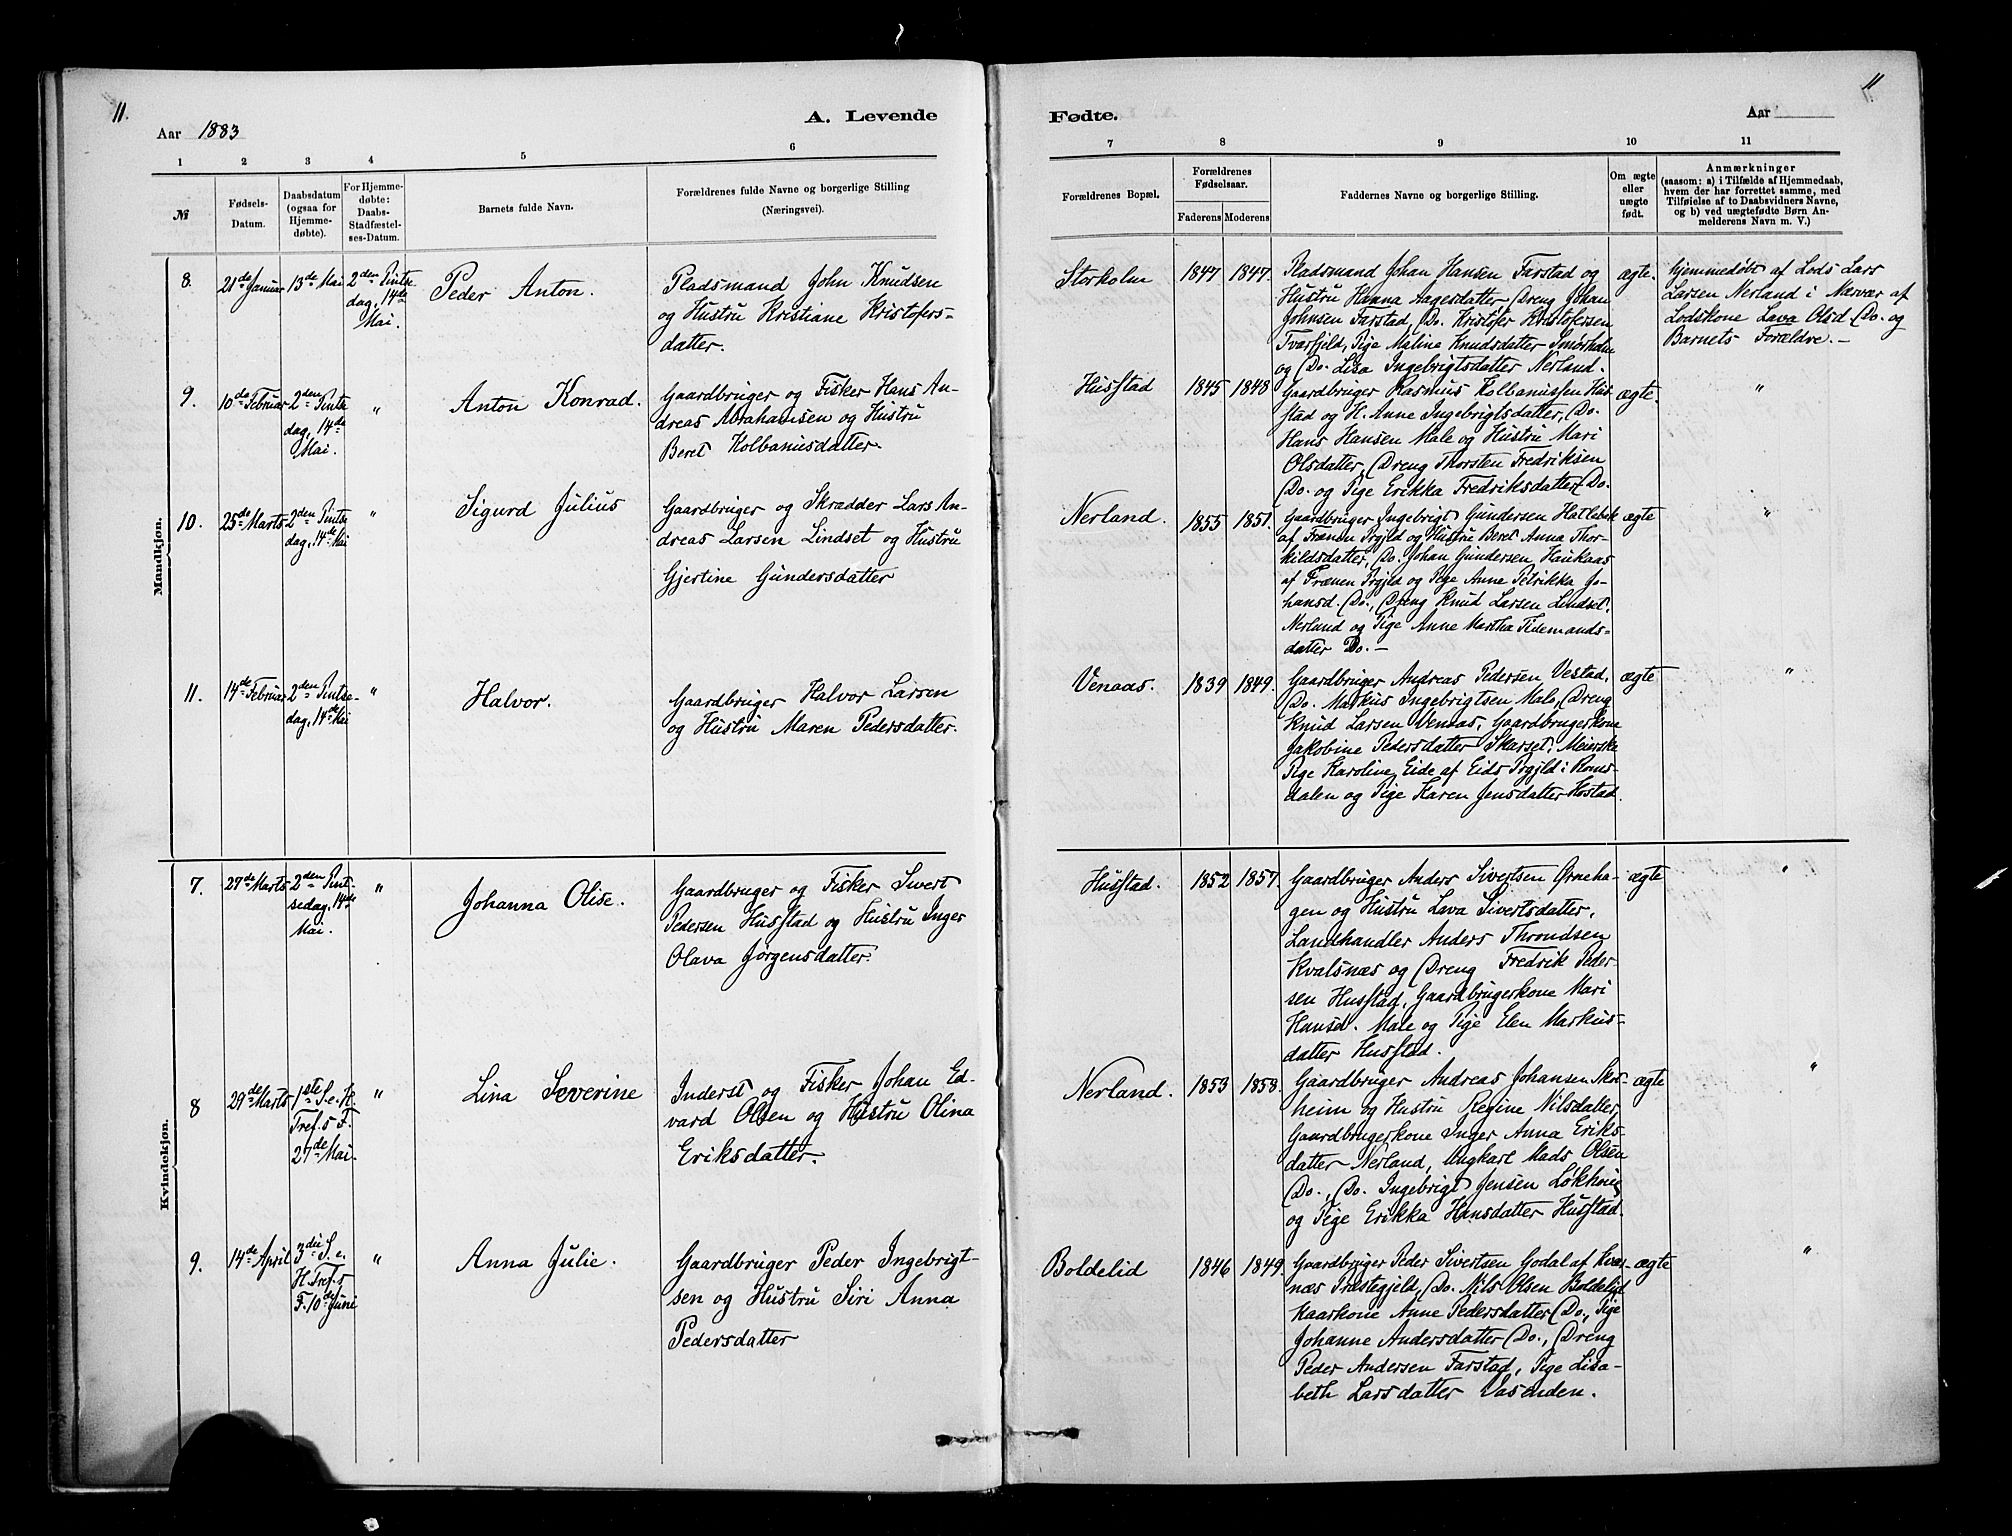 11.
Aar 1883
A. Levende
1 2 3 4 5 6
№
Fødsels-
Datum.
Daabsdatum
(ogsaa for
Hjemme-
døbte).
For Hjemme-
døbte:
Daabs-
Stadfæstel-
ses-Datum.
Barnets fulde Navn.
Forældrenes fulde Navne og borgerlige Stilling
(Næringsvei).
Mandkjøn.
8.
21de Januar
13de Mai
2den Pintse
dag, 14de
Mai.
Peder Anton.
Pladsmand John Knudsen
og Hustru Kristiane Kristofers-
datter.
9.
10de Februar
2den Pintse
dag, 14de
Mai.
"
Anton Konrad.
Gaardbruger og Fisker Hans An-
dreas Abrahamsen og Hustru
Beret Kolbanusdatter.
10.
25de Marts
2den Pintse
dag, 14de Mai
"
Sigurd Julius
Gaardbruger og Skrædder Lars An-
dreas Larsen Lindset og Hustru
Gjertine Gundersdatter
11.
14de Februar
2den Pintse-
dag, 14de Mai
"
Halvor.
Gaardbruger Halvor Larsen
og Hustru Maren Pedersdatter.
Kvindekjøn.
7.
27de Marts
2den Pint-
sedag, 14de
Mai.
"
Johanna Olise.
Gaardbruger og Fisker Sivert
Pedersen Husstad og Hustru Inger
Olava Jørgensdatter.
8
29de Marts
1ste S. e. H.
Tref. s F.
27de Mai.
"
Lina Severine
Inderst og Fisker Johan Ed-
vard Olsen og Hustru Olina
Eriksdatter.
9.
14de April
3die S. e.
H. Tref. s
F. 10de Juni
"
Anna Julie.
Gaardbruger Peder Ingebrigt-
sen og Hustru Siri Anna
Pedersdatter
11
Fødte.
Aar
7 8 9 10 11
Forældrenes Bopæl.
Forældrenes
Fødselsaar.
Faderens Moderens
Faddernes Navne og borgerlige Stilling.
Om ægte
eller
uægte
født.
Anmærkninger
(saasom: a) i Tilfælde af Hjemmedaab,
hvem der har forrettet samme, med
Tilføielse af to Daabsvidners Navne,
og b) ved uægtefødte Børn An-
melderens Navn m. V.)
Storholm
1847 1847.
Pladsmand Johan Hansen Farstad og
Hustru Hanna Aagesdatter, Dreng Johan
Johnsen Farstad, Do. Kristofer Kristofersen
Tverfjeld, Pige Maline Knudsdatter Smørholm
og Do. Lisa Ingebrigtsdatter Nerland.
ægte.
Hjemmedøbt af Lods Lars
Larsen Nerland i Nærvær af
Lodskone Lava Olsd. Do. og
Barnets Forældre. -
Husstad
1845 1848
Gaardbruger Rasmus Kolbanussen Hus-
stad og H. Anne Ingebrigtsdatter, Do.
Hans Hansen Male og Hustru Mari
Olsdatter, Dreng Thorsten Fredriksen
Do. og Pige Erikka Fredriksdatter Do.
ægte.
"
Nerland.
1855 1851.
Gaardbruger Ingebrigt Gundersen Hatlebak
af Frænen Prgjld og Hustru Beret Anna Thor-
kildsdatter, Do. Johan Gundersen Haukaas
af Frænen Prgjld og Pige Anne Petrikka Jo-
hansd. Do., Dreng Knud Larsen Lindset,
Nerland og Pige Anne Martha Tidemands-
datter Do. -
ægte
"
Venaas.
1839 1849.
Gaardbruger Andreas Pedersen Vestad,
Do. Markus Ingebrigtsen Male, Dreng
Knud Larsen Venaas, Gaardbrugerkone
Jakobine Pedersdatter Skarset, Meierske
Pige Karoline Eide af Eids Prgjld i Roms-
dalen og Pige Karen Jensdatter Hostad.
ægte
"
Husstad.
1852 1857.
Gaardbruger Anders Sivertsen Ørneha-
gen og Hustru Lava Sivertsdatter,
Landhandler Anders Throndsen
Kvalsnæs og Dreng Fredrik Peder-
sen Husstad, Gaardbrugerkone Mari
Hansd. Male og Pige Elen Markus-
datter Husstad.
ægte
"
Nerland.
1853 1858.
Gaardbruger Andreas Johansen Skot-
heim og Hustru Regine Nilsdatter,
Gaardbrugerkone Inger Anna Eriks-
datter Nerland, Ungkarl Mads Olsen
Do., Do. Ingebrigt Jensen Løkhoug
og Pige Erikka Hansdatter Husstad.
ægte
"
Boldelid
1846 1849.
Gaardbruger Peder Sivertsen Godal af Kvær-
næs Præstegjeld, Do. Nils Olsen Boldelid
Kaarkone Anne Pedersdatter Do., Pige
Johanne Andersdatter Do., Dreng
Peder Andersen Farstad, Pige Lisa-
beth Larsdatter Vasenden.
ægte
"